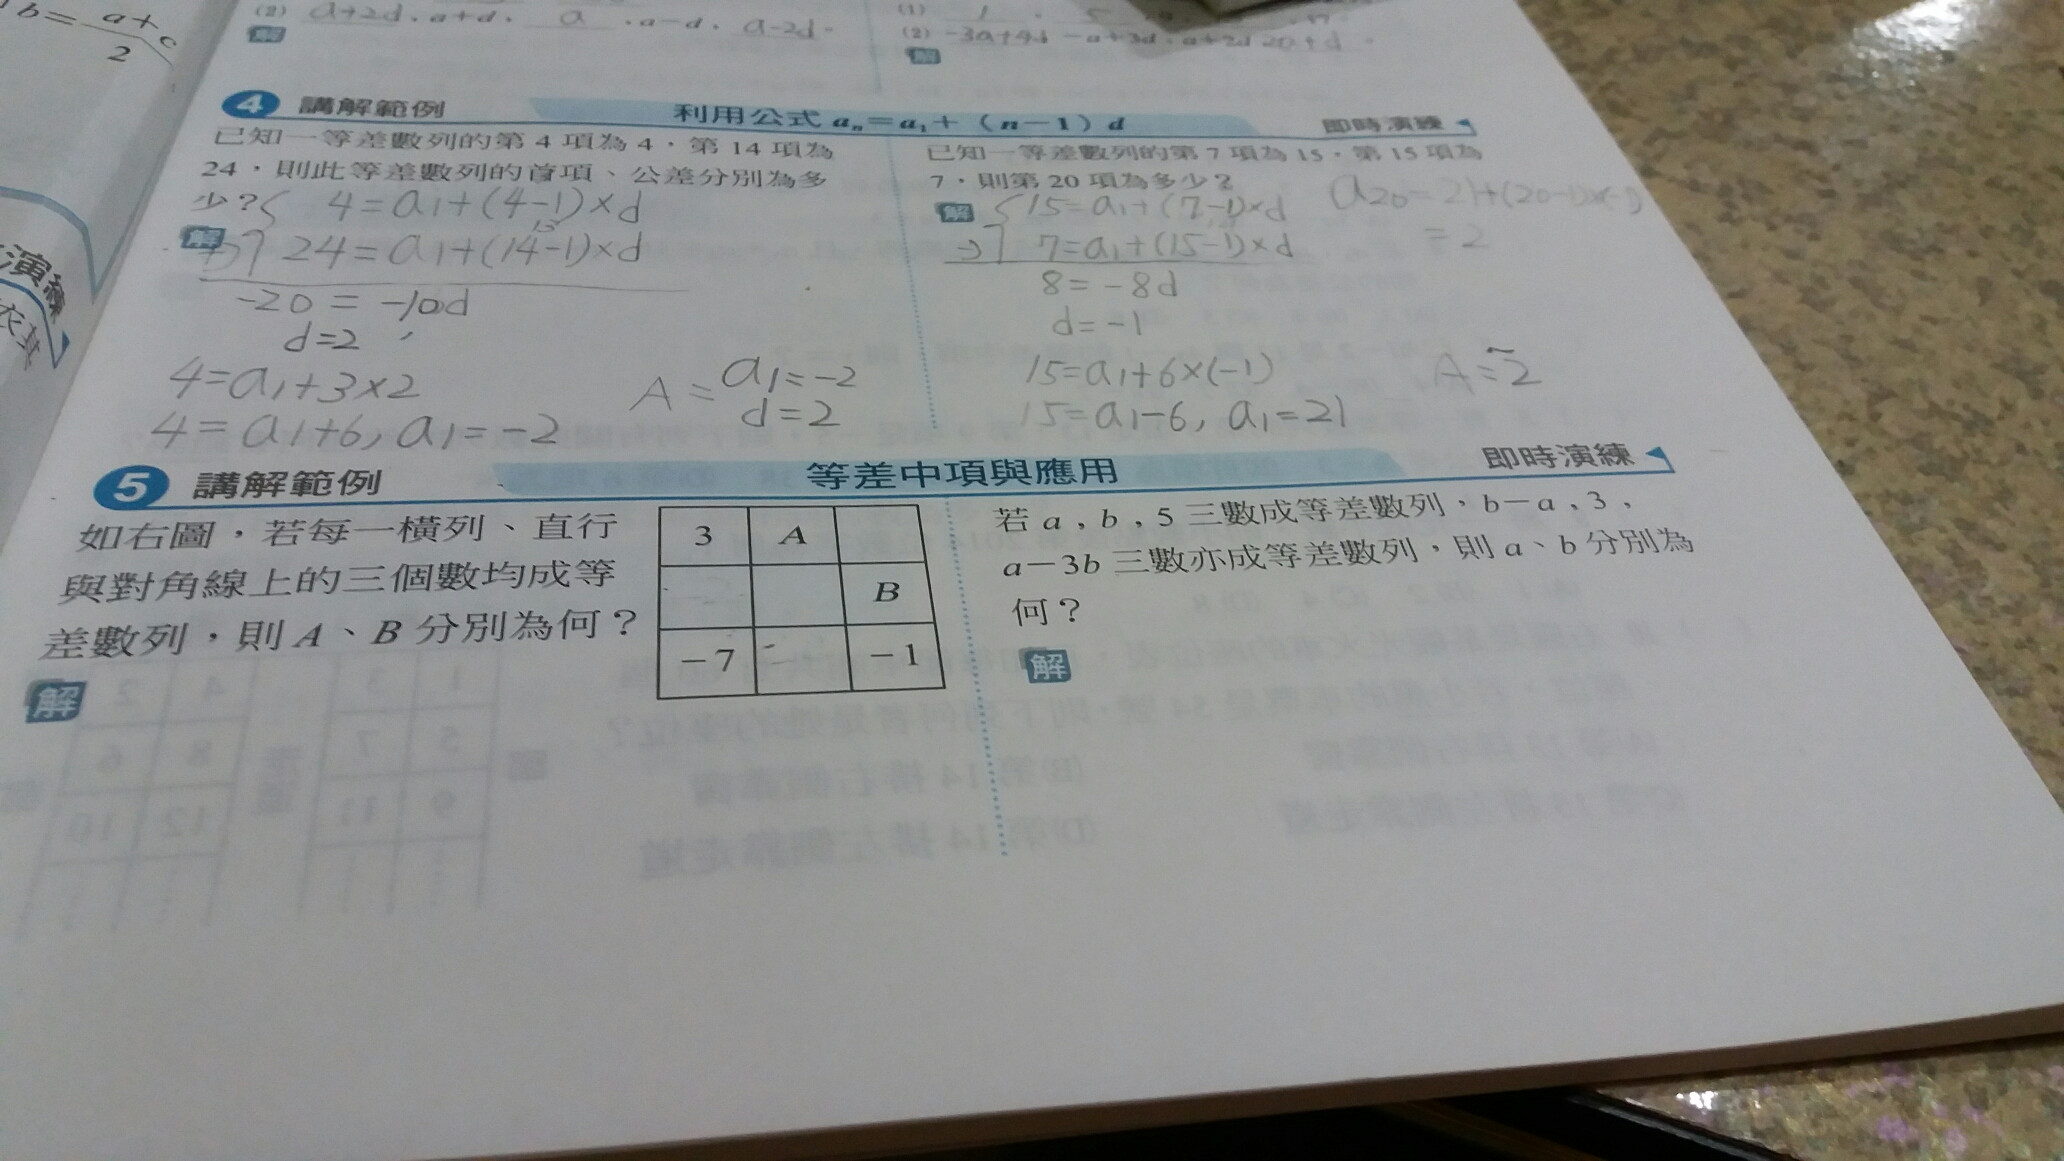 b=a+c/2
(2) a+2d、a+d、a、a-d、a-2d。
解
(2) -3a+4d、-a+3d、a+2d
解
4 講解範例 利用公式 aₙ=a₁+(n-1)d 即時演練
已知一等差數列的第 4 項為 4,第 14 項為
24,則此等差數列的首項、公差分別為多
少?
解
4=a₁+(4-1)×d
-) 24=a₁+(14-1)×d
-20 = -10d
d=2
4=a₁+3×2
4=a₁+6, a₁=-2
A= a₁=-2
d=2
已知一等差數列的第 7 項為 15,第 15 項為
7,則第 20 項為多少?
解
15=a₁+(7-1)×d
-) 7=a₁+(15-1)×d
8=-8d
d=-1
15=a₁+6×(-1)
15=a₁-6, a₁=21
a₂₀=21+(20-1)×(-1)
=2
A=2
5 講解範例 等差中項與應用 即時演練
如右圖,若每一橫列、直行
與對角線上的三個數均成等
差數列,則 A、B 分別為何?
解
3 A
B
-7 -1
若 a,b,5 三數成等差數列,b-a,3,
a-3b 三數亦成等差數列,則 a、b 分別為
何?
解
演練